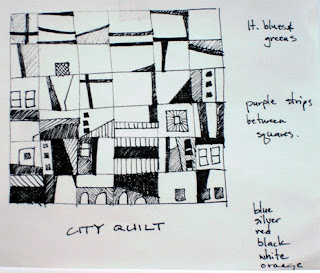 lt. blues &
greens
purple strips
between
squares.
CITY QUILT
blue
silver
red
black
white
orange